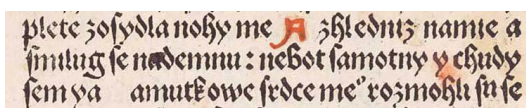 plete zosydla nohy me A zhledniz namie a
smilug se nademnu : nebot samotny y chudy
sem ya amutkowe srdce me° rozmohli su se